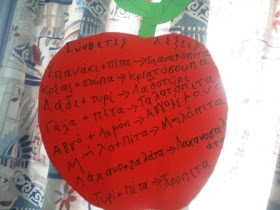 Σύνθετες λέξεις
Σπανάκι+πίτα→Σπανακόπιτα
Κρέας+σούπα→Κρεατόσουπα
Λάδι+τυρί→Λαδοτύρι
Γάλα+πίτα→Γαλατόπιτα
Αβγό+λεμόνι→Αβγολέμονο
Μήλο+πίτα→Μηλόπιτα
Λάχανο+σαλάτα→Λαχανοσαλάτα
Τυρί+πίτα→Τυρόπιτα